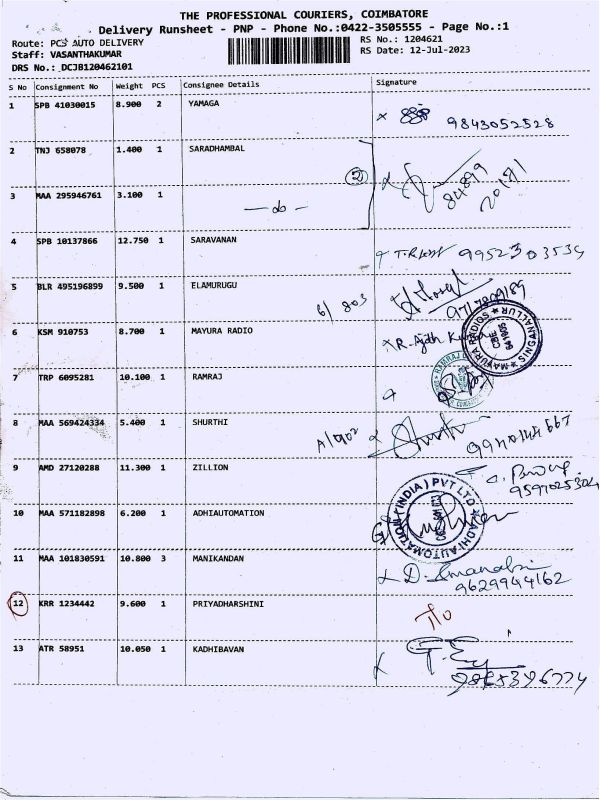 THE PROFESSIONAL COURIERS, COIMBATORE
Delivery Runsheet - PNP - Phone No.:0422-3505555 - Page No.:1
Route: PCS AUTO DELIVERY
RS No.: 1204621
Staff: VASANTHAKUMAR
RS Date: 12-Jul-2023
DRS No.: DCJB120462101
S No Consignment No Weight PCS Consignee Details Signature
1 SPB 41030015 8.900 2 YAMAGA
9843052528
2 TNJ 658078 1.400 1 SARADHAMBAL
2
3 MAA 295946761 3.100 1 - do -
4 SPB 10137866 12.750 1 SARAVANAN
5 BLR 495196899 9.500 1 ELAMURUGU
6 KSM 910753 8.700 1 MAYURA RADIO
MAYURA RADIOS
7 TRP 6095281 10.100 1 RAMRAJ
8 MAA 569424334 5.400 1 SHURTHI
9 AMD 27120288 11.300 1 ZILLION
10 MAA 571182898 6.200 1 ADHIAUTOMATION
ADHI AUTOMATION (INDIA) PVT LTD
11 MAA 101830591 10.800 3 MANIKANDAN
9629944162
12 KRR 1234442 9.600 1 PRIYADHARSHINI
13 ATR 58951 10.050 1 KADHIBAVAN